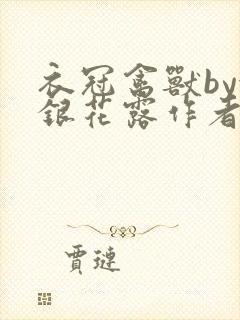 衣冠禽獸by
銀花露作者
賈璉